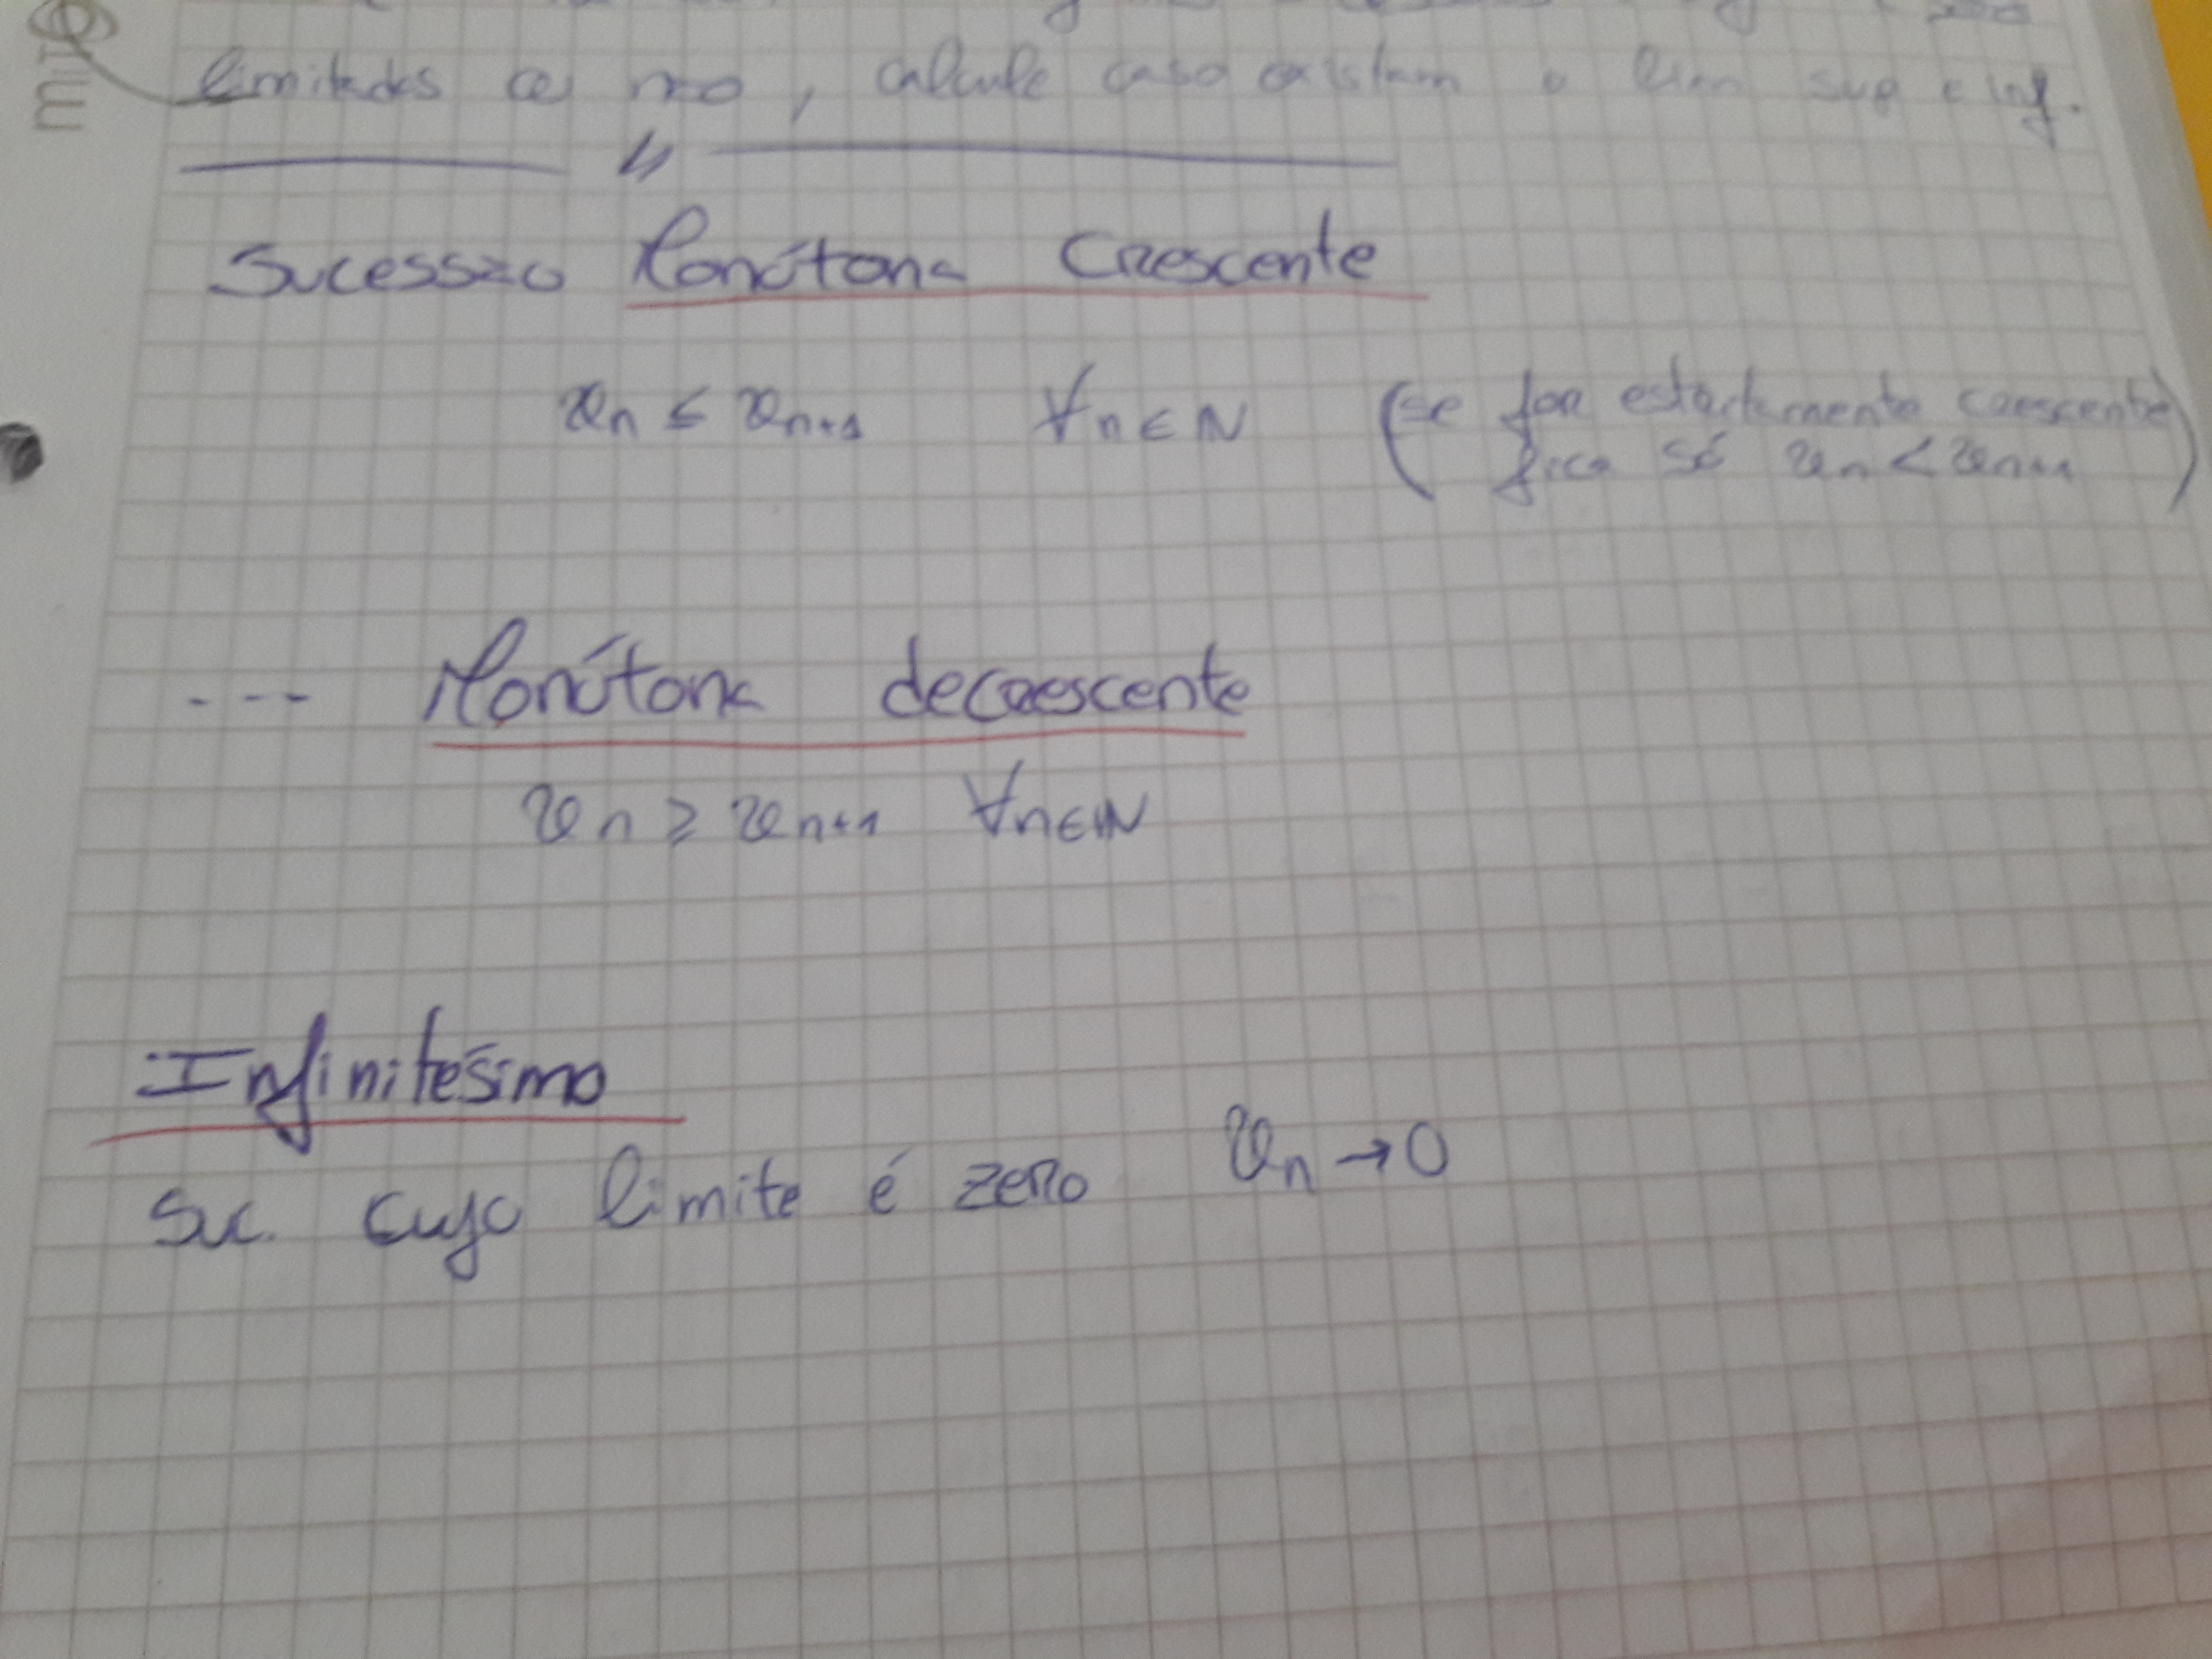 limitadas ou não, calcule caso existam o lim sup e inf.
Sucessão Monótona Crescente
xn ≤ xn+1 ∀n∈N (se for estritamente crescente
fica só xn < xn+1)
--- Monótona decrescente
xn ≥ xn+1 ∀n∈IN
Infinitésimo
Suc. cujo limite é zero xn → 0